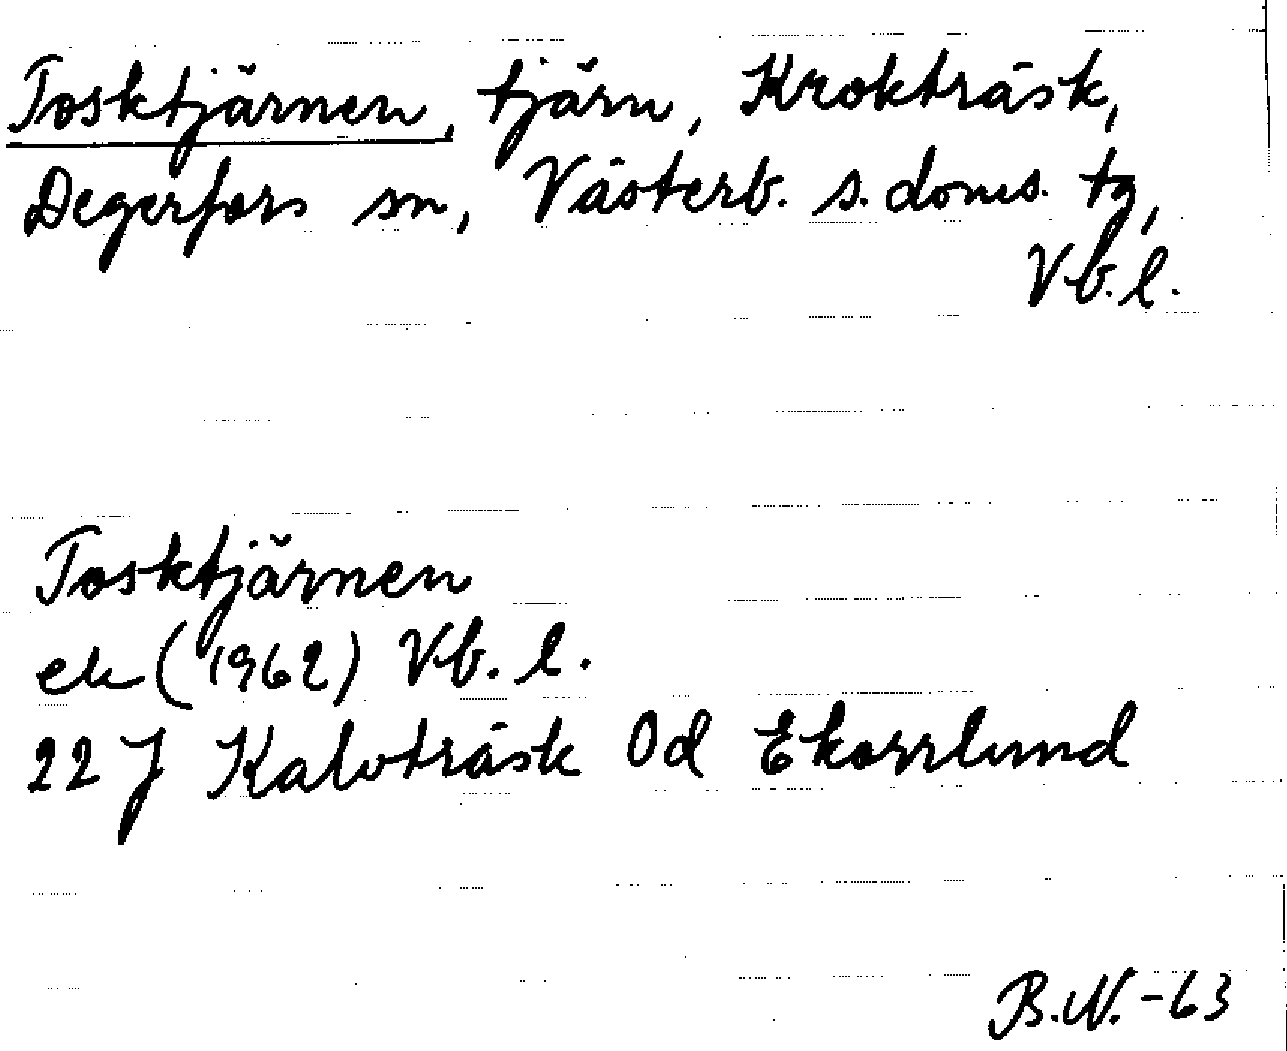 Tosktjärnen, tjärn, Krokträsk,
Degerfors sn, Västerb. s. doms. tg,
Vb. l.
Tosktjärnen
ek (1962) Vb. l.
22 J Kalvträsk 0d Ekorrlund
B.N.-63